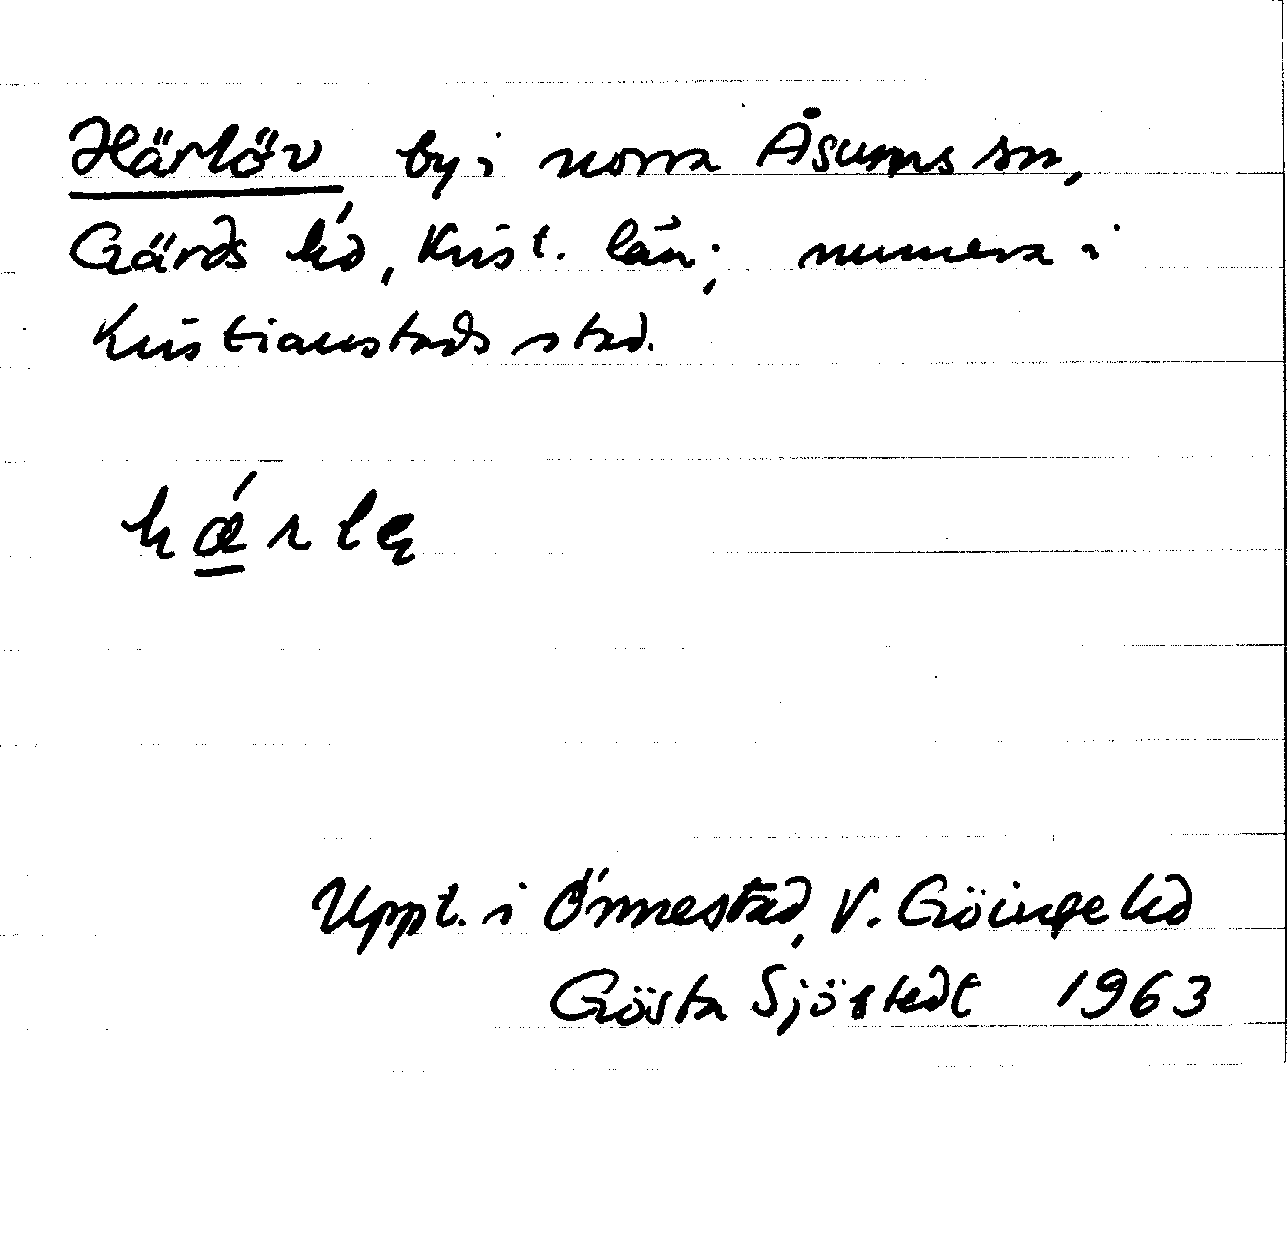 Härlöv, by i norra Åsums sn,
Gärds hd, Krist. län; numera i
Kristianstads stad.
hǽrlę
Uppt. i Önnestad, V. Göinge hd
Gösta Sjöstedt 1963